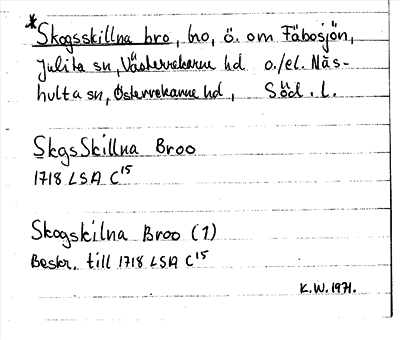 *Skogsskillna bro, bro, ö. om Fåbosjön,
Julita sn, Västerrekarne hd o./el. Näs-
hulta sn, Österrekarne hd, Söd. l.
SkgsSkillna Broo
1718 LSA C15
Skogskilna Broo (1)
Beskr. till 1718 LSA C15
K.W. 1971.